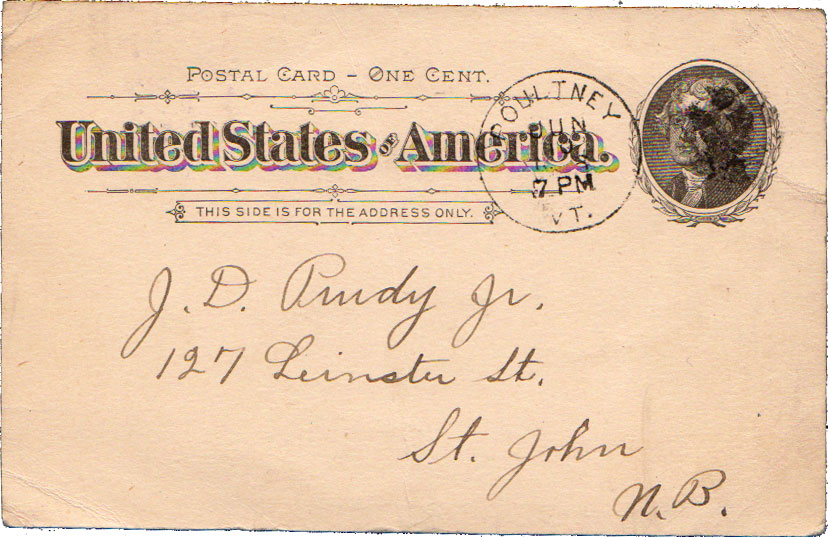 POSTAL CARD - ONE CENT.
United States of America.
THIS SIDE IS FOR THE ADDRESS ONLY.
POULTNEY
JUN
7 PM
VT.
J. D. Purdy Jr.
127 Leinster St.
St. John
N.B.